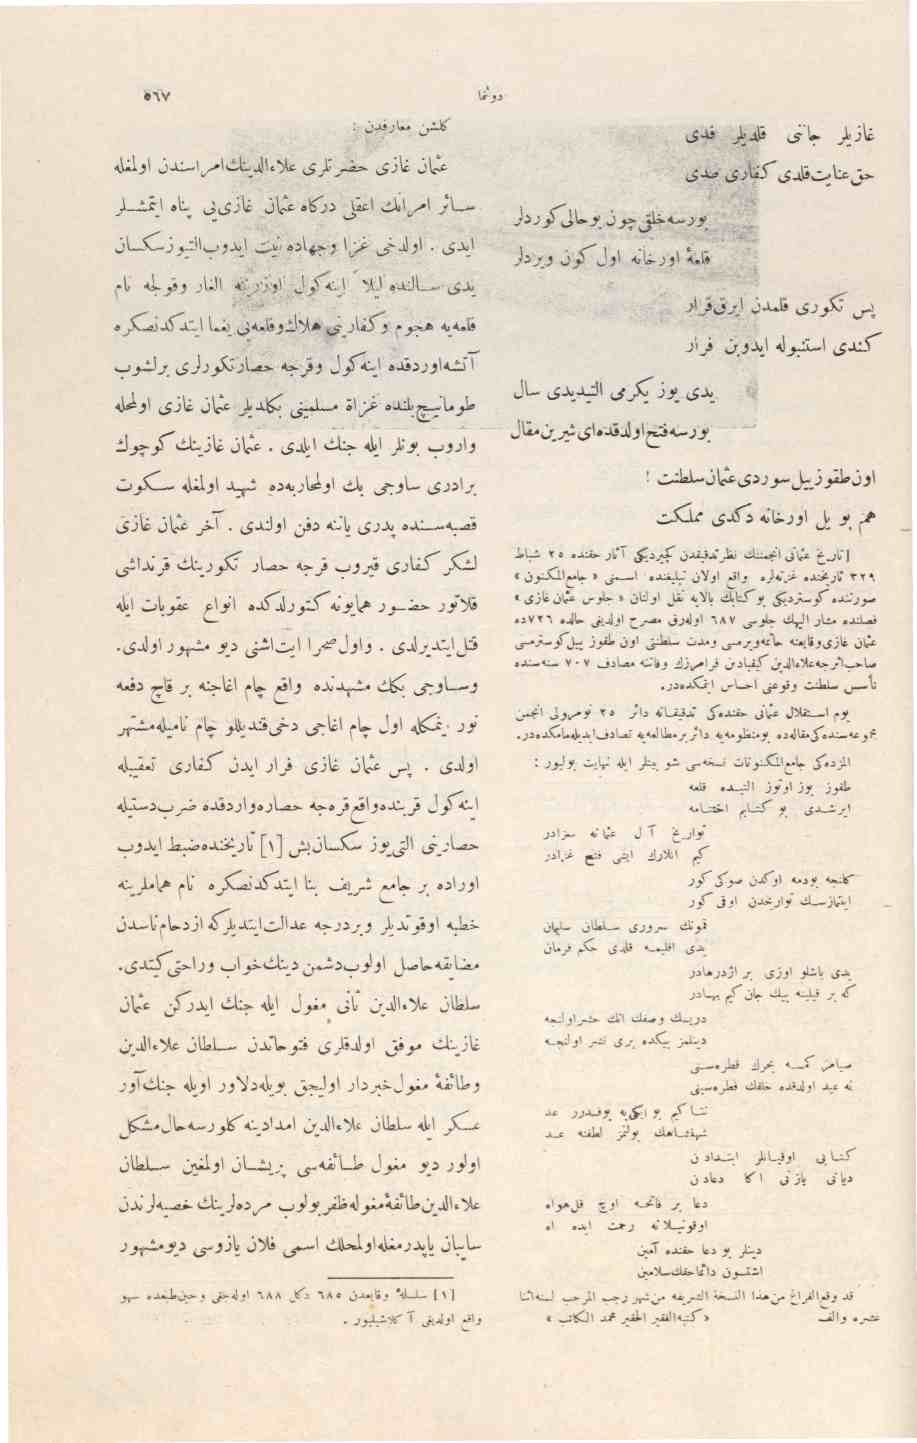 دوننما
٥٦٧
غازیلر جاننی قلدیلر فدی
حق عنایت قلدی كفاری صدی
بورسه خلقی چون بو حالی كوردلر
قلعهٔ اورخانه اول كون ویردلر
پس تكوری قلمدن ایرق قرار
كندی استنبوله ایدوبن فرار
یدی یوز یكرمی التیدیدی سال
بورسه فتح اولدقده ای شیرین مقال
اون طقوز ییل سوردی عثمان سلطنت !
هم بو یل اورخانه دكدی مملكت
[تاریخ عثمانی انجمننك نظر تدقیقدن كچیردیكی آثار حقنده ٢٥ شباط
٣٢٩ تاریخنده غزته‌لره واقع اولان تبلیغنده اسمنی « جامع المكنون »
صورتنده كوستردیكی بو كتابك بالایه نقل اولنان « جلوس عثمان غازی »
فصلنده مشار الیهك جلوسی ٦٨٧ اوله‌رق مصرح اولدیغی حالده ٧٢٦ده
عثمان غازی وقایعنه خاتمه ویرمسی ومدت سلطنتی اون طقوز ییل كوسترمسی
صاحب اثرجه علاءالدین كیقبادین فرامرزك وفاتنه مصادف ٧٠٧ سنه‌سنده
تأسس سلطنت وقوعنی احساس ایتمكده‌در.
یوم استقلال عثمانی حقنده‌كی تدقیقاته دائر ٢٥ نومرولی انجمن
مجموعه‌سنده‌كی مقاله‌ده بو منظومه‌یه دائر بر مطالعه‌یه تصادف ایدیله‌مامكده‌در.
المزده‌كی جامع المكنونات نسخه‌سی شو بیتلر ایله نهایت بولیور :
طقوز یوز اوتوز التیده قلعه
ایرشدی بو كتابم اختتامه
تواریخ آل عثمانه سزادر
كیم انلارك ایشی فتح غزادر
كلنجه بودمه اوكدن صوكی كور
ایتمازسك توارخدن اوقی كور
قمونك سروری سلطان سلیمان
یدی اقلیمه قلدی حكم فرمان
یدی باشلو اوزی بر اژدرهادر
كه بر قیلینه بیك جان كیم بهادر
درینك وصفك انك حشر اولنجه
دینلمز بیكده بری نشر اولنجه
صیاهز كمسه بحرك قطره‌سنی
نه عید اولدقده خلقك فطره‌سینی
ثنا كیم بو ایكی‌یه یوقدرر عد
شهنشاهك بولنمز لطفنه عد
كتابی اوقیانلر ابتدادن
دیانی یازنی اكا دعادن
دعا بر فاتحه اوچ قل هواه
اوقونیلانه رحمت ایده اه
دینلر بو دعا حقنده آمین
اشتسون دائما حقك سلامین
قد وقع الفراغ من هذا النسخة الشریفه من شهر رجب المرجب لسنه اثنا
عشره والف « كتبه الفقیر الحقیر محمد الكاتب »
كلشن معارفدن :
عثمان غازی حضرتلری علاءالدینك امراسندن اولمغله
سائر امرانك اعقلی دركاه عثمان غازی‌یی پناه ایتمشلر
ایدی . اولدخی غزا وجهاده نیت ایدوب التیوز سكسان
یدی سالنده لیلا اینه‌كول اوزرینه الغار وقولجه نام
قلعه‌یه هجوم وكفارینی هلاك وقلعه‌یی یغما ایتدكدنصكره
آتشه اوردقده اینه كول وقرجه حصار تكورلری برلشوب
طومانیچ بلنده غزاة مسلمینی بكلدیلر عثمان غازی اولمحله
واروب بونلر ایله جنك ایلدی . عثمان غازینك كوچوك
برادری ساوجی بك اولمحاربه‌ده شهید اولمغله سكوت
قصبه‌سنده پدری یاننه دفن اولندی . آخر عثمان غازی
لشكر كفاری قیروب قرجه حصار تكورینك قرنداشی
قلاتور حضور همایونه كتورلدكده انواع عقوبات ایله
قتل ایتدیرلدی . واول صحرا ایت اشنی دیو مشهور اولدی.
وساوجی بكك مشهدنده واقع چام اغاجنه بر قاچ دفعه
نور ینمكله اول چام اغاجی دخی قندیللو چام نامیله مشتهر
اولدی . پس عثمان غازی فرار ایدن كفاری تعقیبله
اینه كول قربنده واقع قره‌جه حصاره واردقده ضرب دستیله
حصارینی التی یوز سكسان بش [١] تاریخنده ضبط ایدوب
اوراده بر جامع شریف بنا ایتدكدنصكره نام هماملرینه
خطبه اوقوتدیلر وبردرجه عدالت ایتدیلركه ازدحام ناسدن
مضایقه حاصل اولوب دشمن دینك خواب وراحتی كیتدی.
سلطان علاءالدین ثانی مغول ایله جنك ایدركن عثمان
غازینك موفق اولدقلری فتوحاتدن سلطان علاءالدین
وطائفهٔ مغول خبردار اولیجق بویله دلاور اویله جنك آور
عسكر ایله سلطان علاءالدین امدادینه كلورسه حال مشكل
اولور دیو مغول طائفه‌سی پریشان اولمغین سلطان
علاءالدین طائفهٔ مغوله ظفر بولوب مرده‌لرینك خصیه‌لرندن
سایبان یاپدرمغله اولمحلك اسمی فلان یازوسی دیو مشهور
[١] سلسلهٔ وقایعدن ٦٨٥ دكل ٦٨٨ اوله‌جغی وحین طبعده سهو
واقع اولدیغی آكلاشیلیور .